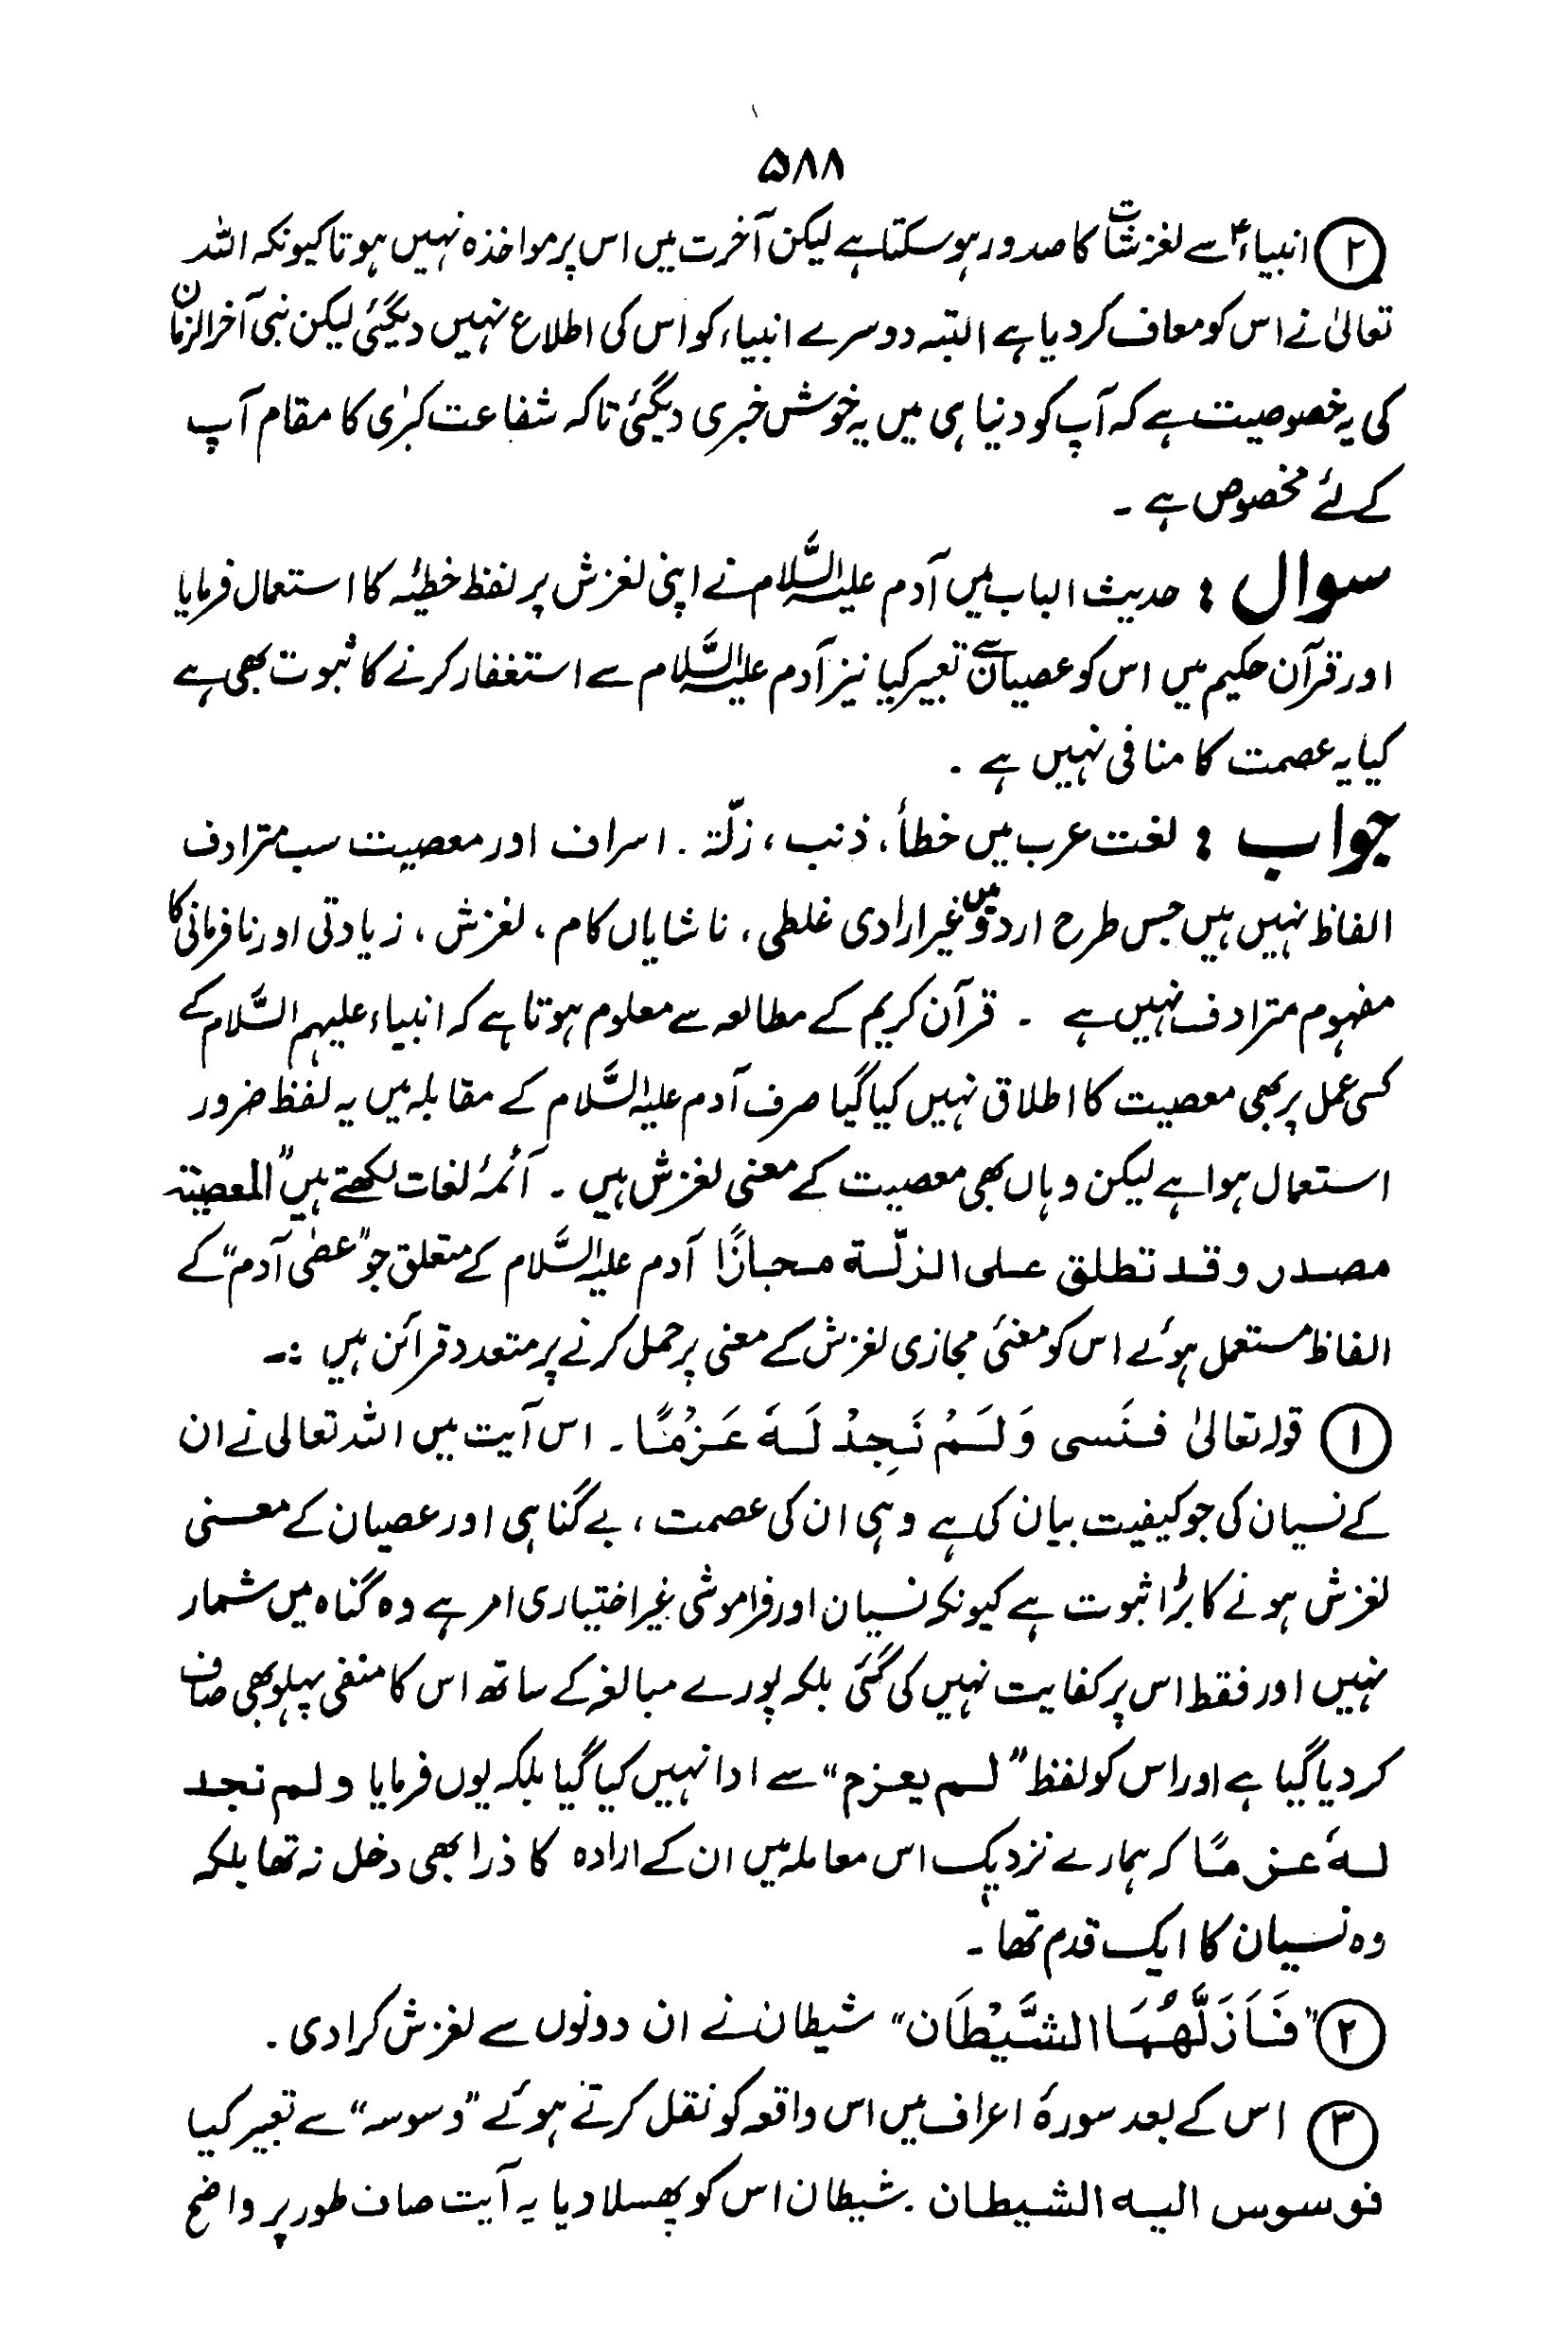 ۵۸۸
② انبیاءؑ سے لغزشات کا صدور ہو سکتا ہے لیکن آخرت میں اس پر مواخذہ نہیں ہوتا کیونکہ اللہ
تعالیٰ نے اس کو معاف کر دیا ہے البتہ دوسرے انبیاء کو اس کی اطلاع نہیں دیگئی لیکن نبی آخرالزمان
کی یہ خصوصیت ہے کہ آپ کو دنیا ہی میں یہ خوش خبری دیگئی تاکہ شفاعت کبرٰی کا مقام آپ
کے لئے مخصوص ہے ۔
سوال : حدیث الباب میں آدم علیہ السَّلام نے اپنی لغزش پر لفظ خطیئہ کا استعمال فرمایا
اور قرآن حکیم میں اس کو عصیان سے تعبیر کیا نیز آدم علیہ السَّلام سے استغفار کرنے کا ثبوت بھی ہے
کیا یہ عصمت کا منافی نہیں ہے ۔
جواب : لغت عرب میں خطأ، ذنب، زلّۃ ۔ اسراف اور معصیت سب مترادف
الفاظ نہیں ہیں جس طرح اردو میں غیر ارادی غلطی، ناشایاں کام، لغزش، زیادتی اور نافرمانی کا
مفہوم مترادف نہیں ہے ۔ قرآن کریم کے مطالعہ سے معلوم ہوتا ہے کہ انبیاء علیہم السَّلام کے
کسی عمل پر بھی معصیت کا اطلاق نہیں کیا گیا صرف آدم علیہ السَّلام کے مقابلہ میں یہ لفظ ضرور
استعمال ہوا ہے لیکن وہاں بھی معصیت کے معنی لغزش ہیں ۔ آئمۂ لغات لکھتے ہیں "المعصیۃ
مصدر وقد تطلق علی الزلّة مجازًا آدم علیہ السَّلام کے متعلق جو "عصٰی آدم" کے
الفاظ مستعمل ہوئے اس کو معنئ مجازی لغزش کے معنی پر حمل کرنے پر متعدد قرائن ہیں :۔
① قولہ تعالیٰ فَنَسی وَلَمْ نَجِدْ لَهٗ عَزْمًا ۔ اس آیت میں اللہ تعالی نے ان
کے نسیان کی جو کیفیت بیان کی ہے وہی ان کی عصمت، بے گناہی اور عصیان کے معنی
لغزش ہونے کا بڑا ثبوت ہے کیونکہ نسیان اور فراموشی غیر اختیاری امر ہے وہ گناہ میں شمار
نہیں اور فقط اس پر کفایت نہیں کی گئی بلکہ پورے مبالغہ کے ساتھ اس کا منفی پہلو بھی صاف
کر دیا گیا ہے اور اس کو لفظ "لم یعزم" سے ادا نہیں کیا گیا بلکہ یوں فرمایا ولم نجد
لهٗ عزمًا کہ ہمارے نزدیک اس معاملہ میں ان کے ارادہ کا ذرا بھی دخل نہ تھا بلکہ
وہ نسیان کا ایک قدم تھا ۔
② "فَاَزَلَّهُمَا الشَّيْطَان" شیطان نے ان دونوں سے لغزش کرا دی ۔
③ اس کے بعد سورۂ اعراف میں اس واقعہ کو نقل کرتے ہوئے "وسوسہ" سے تعبیر کیا
فوسوس الیه الشیطان ۔ شیطان اس کو پھسلا دیا یہ آیت صاف طور پر واضح